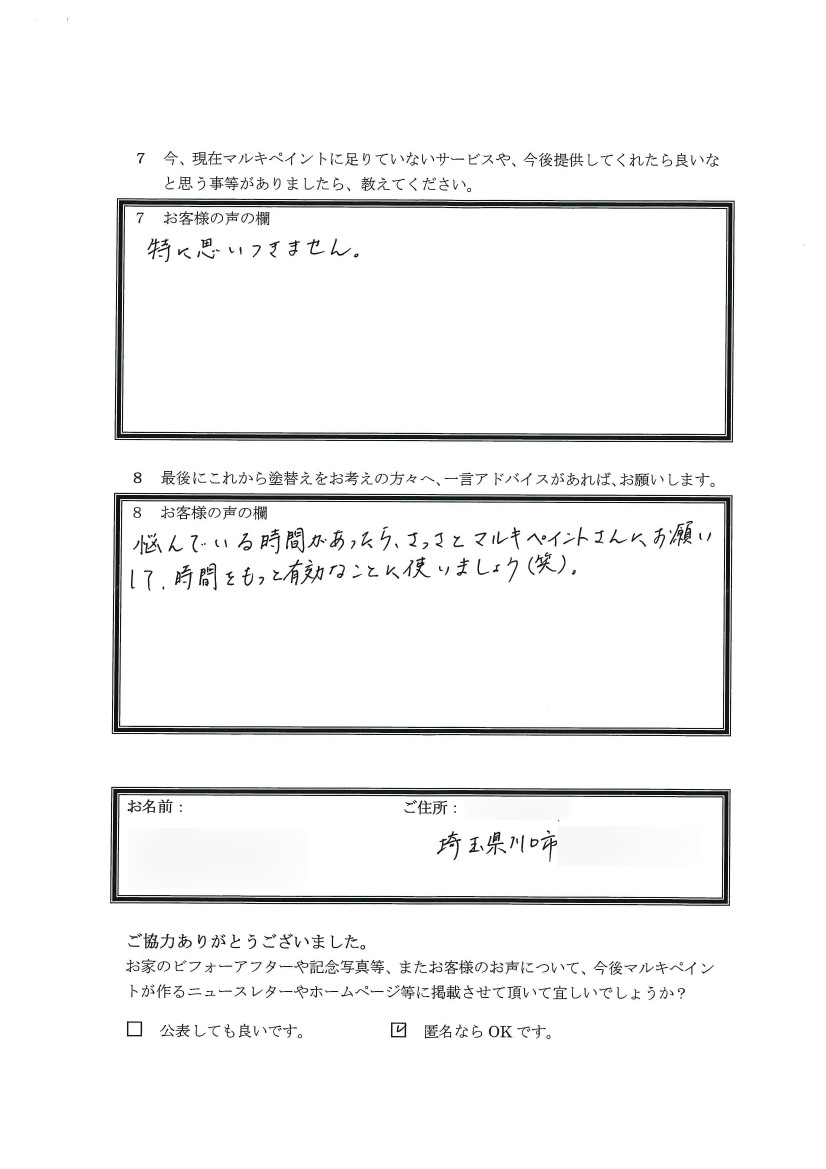 7 今、現在マルキペイントに足りていないサービスや、今後提供してくれたら良いな
と思う事等がありましたら、教えてください。
7 お客様の声の欄
特に思いつきません。
8 最後にこれから塗替えをお考えの方々へ、一言アドバイスがあれば、お願いします。
8 お客様の声の欄
悩んでいる時間があったら、さっさとマルキペイントさんに、お願い
して、時間をもっと有効なことに使いましょう(笑)。
お名前：
ご住所：
埼玉県川口市
ご協力ありがとうございました。
お家のビフォーアフターや記念写真等、またお客様のお声について、今後マルキペイン
トが作るニュースレターやホームページ等に掲載させて頂いて宜しいでしょうか？
□ 公表しても良いです。
☑ 匿名なら OK です。